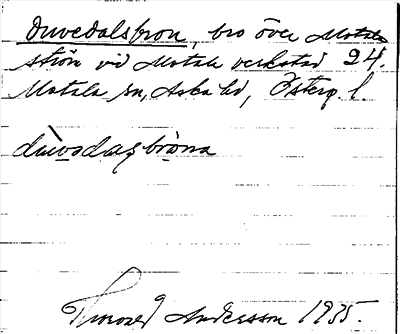 Duvedalsbron, bro över Motala
ström vid Motala verkstad 24.
Motala sn, Aska hd, Österg. l
duvodagbrona
Thorvald Andersson 1935.